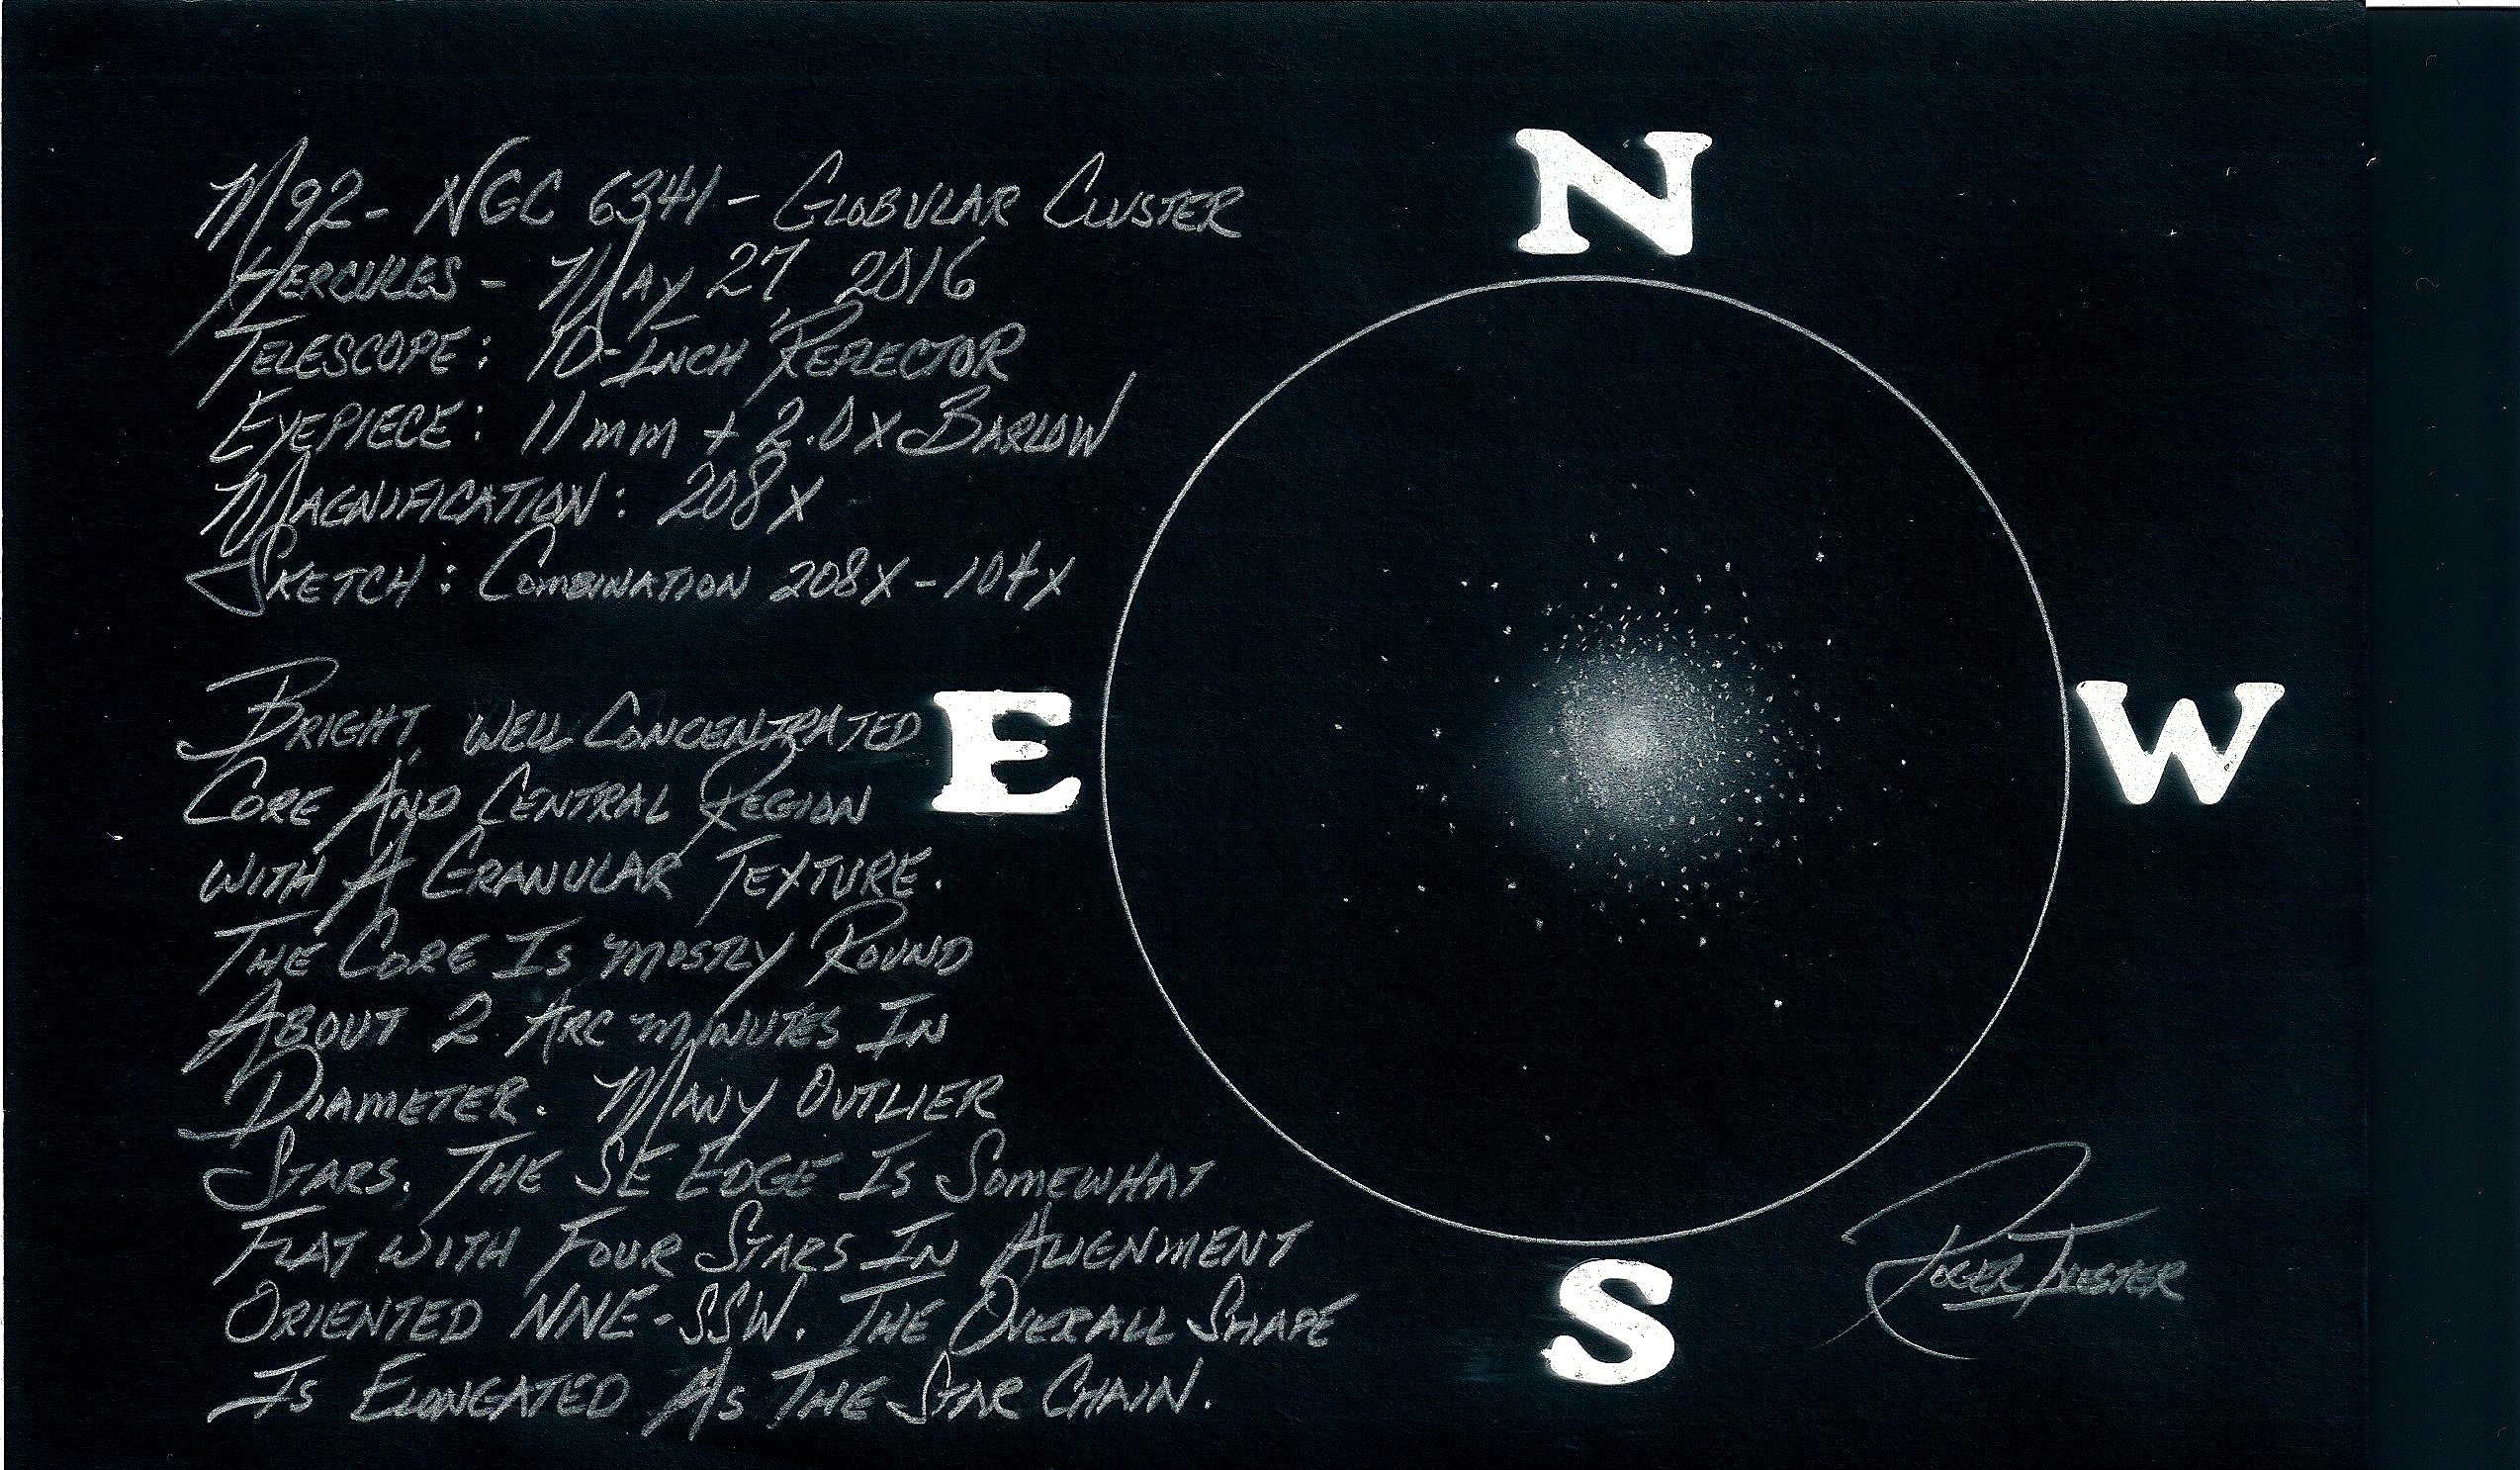 M92 - NGC 6341 - Globular Cluster
Hercules - May 27, 2016
Telescope: 10-Inch Reflector
Eyepiece: 11mm + 2.0x Barlow
Magnification: 208x
Sketch: Combination 208x - 104x
Bright, well Concentrated
Core And Central Region
with A Granular Texture.
The Core Is mostly Round
About 2 Arc minutes In
Diameter. Many Outlier
Stars. The SE Edge Is Somewhat
Flat with Four Stars In Alignment
Oriented NNE-SSW. The Overall Shape
Is Elongated As The Star Chain.
N
E
W
S
Roger Ivester